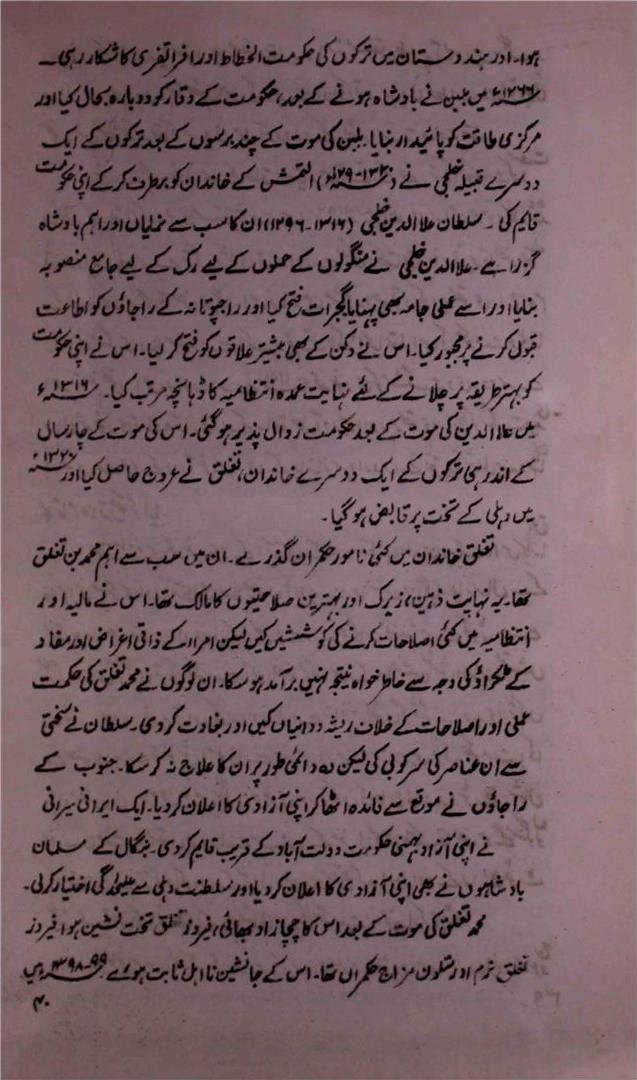 ہوا۔ اور ہندوستان میں ترکوں کی حکومت انحطاط اور افراتفری کا شکار رہی۔
۱۲۶۶ء میں بلبن نے بادشاہ ہونے کے بعد، حکومت کے وقار کو دوبارہ بحال کیا اور
مرکزی طاقت کو پائیدار بنایا۔ بلبن کی موت کے چند برسوں کے بعد ترکوں کے ایک
دوسرے قبیلہ خلجی نے التمش کے خاندان کو برطرف کر کے اپنی حکومت
قایم کی۔ سلطان علاالدین خلجی (۱۳۱۶-۱۲۹۶) ان کا سب سے نمایاں اور اہم بادشاہ
گزرا ہے۔ علاالدین خلجی نے منگولوں کے حملوں کے لیے رک کے لیے جامع منصوبہ
بنایا اور اسے عملی جامہ بھی پہنایا گجرات فتح کیا اور راجپوتانہ کے راجاؤں کو اطاعت
قبول کرنے پر مجبور کیا۔ اس نے دکن کے بھی بیشتر علاقوں کو فتح کر لیا۔ اس نے اپنی حکومت
کو بہتر طریقہ پر چلانے کے لئے نہایت عمدہ انتظامیہ کا ڈھانچہ مرتب کیا۔ ۱۳۱۶ء
میں علاالدین کی موت کے بعد حکومت زوال پذیر ہو گئی۔ اس کی موت کے چار سال
کے اندر ہی ترکوں کے ایک دوسرے خاندان، تغلق نے عروج حاصل کیا اور ۱۳۲۰ء
میں دہلی کے تخت پر قابض ہو گیا۔
تغلق خاندان میں کئی نامور حکمران گذرے۔ ان میں سب سے اہم محمد بن تغلق
تھا۔ یہ نہایت ذہین، زیرک اور بہترین صلاحیتوں کا مالک تھا۔ اس نے مالیہ اور
انتظامیہ میں کئی اصلاحات کرنے کی کوششیں کیں لیکن امراء کے ذاتی اغراض اور مفاد
کے ٹکراؤ کی وجہ سے خاطر خواہ نتیجہ نہیں برآمد ہو سکا۔ ان لوگوں نے محمد تغلق کی حکمت
عملی اور اصلاحات کے خلاف ریشہ دوانیاں کیں اور بغاوت کر دی۔ سلطان نے سختی
سے ان عناصر کی سرکوبی کی لیکن وہ دائمی طور پر ان کا علاج نہ کر سکا۔ جنوب کے
راجاؤں نے موقع سے فائدہ اٹھا کر اپنی آزادی کا اعلان کر دیا۔ ایک ایرانی سیرانی
نے اپنی آزاد بہمنی حکومت دولت آباد کے قریب قایم کر دی۔ بنگال کے مسلمان
بادشاہوں نے بھی اپنی آزادی کا اعلان کر دیا اور سلطنت دہلی سے علیحدگی اختیار کر لی۔
محمد تغلق کی موت کے بعد اس کا چچازاد بھائی، فیروز تغلق تخت نشین ہوا، فیروز
تغلق نرم اور متلون مزاج حکمراں تھا۔ اس کے جانشین نااہل ثابت ہوئے ۹۹-۱۳۹۸ء میں
۴۰